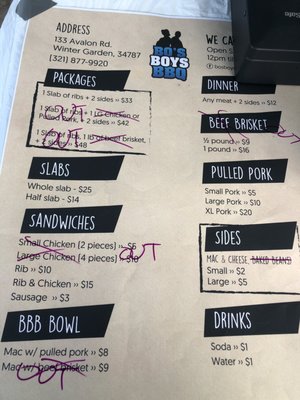 ADDRESS
133 Avalon Rd.
Winter Garden, 34787
(321) 877-9920
BO'S
BOYS
BBQ
WE CA
Open S
12pm til
PACKAGES
1 Slab of ribs + 2 sides » $33
1 Slab of ribs + 1 LG Chicken or
Pulled Pork, + 2 sides » $42
OUT
1 Slab of ribs + 1 lb of beef brisket,
+ 2 sides » $48
OUT
SLABS
Whole slab - $25
Half slab - $14
SANDWICHES
Small Chicken (2 pieces) » $6
Large Chicken (4 pieces) » $10
OUT
Rib » $10
Rib & Chicken » $15
Sausage » $3
BBB BOWL
Mac w/ pulled pork » $8
Mac w/ beef brisket » $9
OUT
DINNER
Any meat + 2 sides » $12
BEEF BRISKET
½ pound » $9
1 pound » $16
PULLED PORK
Small Pork » $5
Large Pork » $10
XL Pork » $20
SIDES
MAC & CHEESE, BAKED BEANS
Small » $2
Large » $5
DRINKS
Soda » $1
Water » $1